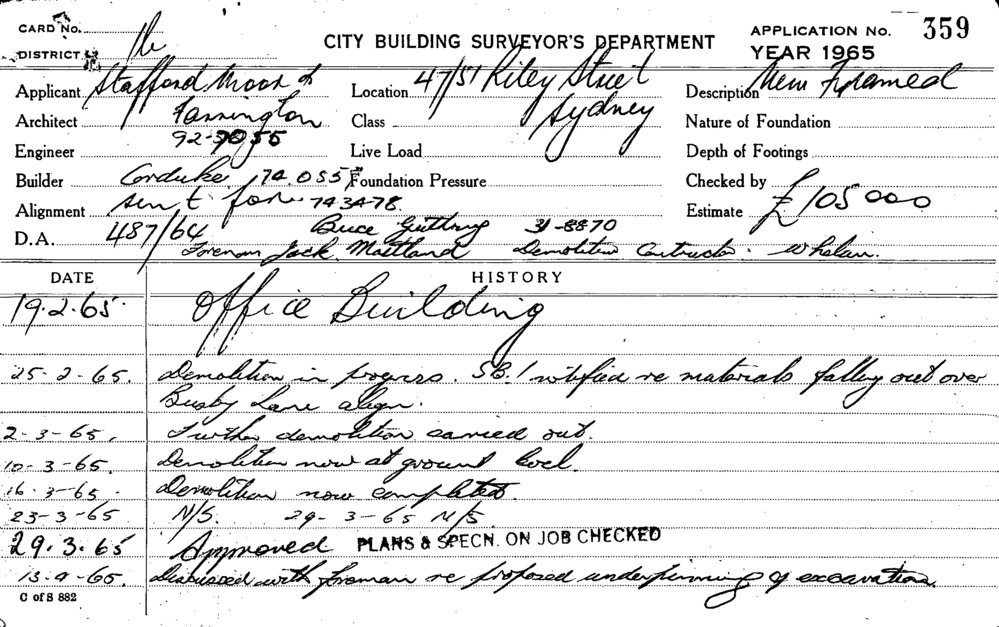 CARD No.
DISTRICT
CITY BUILDING SURVEYOR'S DEPARTMENT
APPLICATION No. 359
YEAR 1965
Applicant Stafford Moor &
Location 47/51 Riley Street
Description New Framed
Architect Farrington
Class Sydney
Nature of Foundation
92-5055
Engineer
Live Load
Depth of Footings
Builder Corduke 74 0557
Foundation Pressure
Checked by
Alignment sent for 743478
Estimate £105000
D.A. 487/64 Bruce 31-8870
Foreman Jack Maitland Demolition Contractor. Whelan.
DATE HISTORY
19.2.65. Office Building
25-2-65. Demolition in progress. SB.1 notified re materials falling out over
Busby Lane align.
2-3-65. Further demolition carried out.
10-3-65. Demolition now at ground level.
16.3-65. Demolition now completed.
23-3-65 N/S. 29-3-65 N/S.
29.3.65 Approved PLANS & SPECN. ON JOB CHECKED
13-9-65. Discussed with foreman re proposed underpinning of excavation
C of S 882